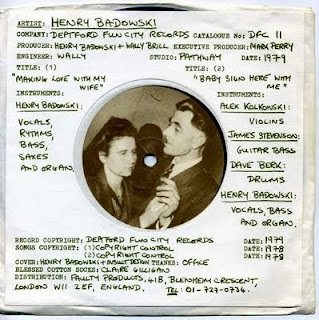 ARTIST: HENRY BADOWSKI
COMPANY: DEPTFORD FUN CITY RECORDS CATALOGUE No: DFC 11
PRODUCER: HENRY BADOWSKI + WALLY BRILL EXECUTIVE PRODUCER: MARK PERRY
ENGINEER: WALLY STUDIO: PATHWAY DATE: 1979
TITLE: (1) TITLE: (2)
"MAKING LOVE WITH MY WIFE" "BABY SIGN HERE WITH ME"
INSTRUMENTS:
HENRY BADOWSKI:
VOCALS,
RYTHMS,
BASS,
SAXES
AND ORGAN.
INSTRUMENTS:
ALEX KOLKOWSKI:
VIOLINS
JAMES STEVENSON:
GUITAR BASS
DAVE BERK:
DRUMS
HENRY BADOWSKI:
VOCALS, BASS
AND ORGAN.
RECORD COPYRIGHT: DEPTFORD FUN CITY RECORDS DATE: 1979
SONGS COPYRIGHT: (1) COPYRIGHT CONTROL DATE: 1978
(2) COPYRIGHT CONTROL DATE: 1978
COVER: HENRY BADOWSKI + INSULT DESIGN THANKS: OFFICE
BLESSED COTTON SOCKS: CLAIRE GILLIGAN
DISTRIBUTION: FAULTY PRODUCTS. 41B, BLENHEIM CRESCENT,
LONDON W11 2EF, ENGLAND. TEL: 01-727-0734.